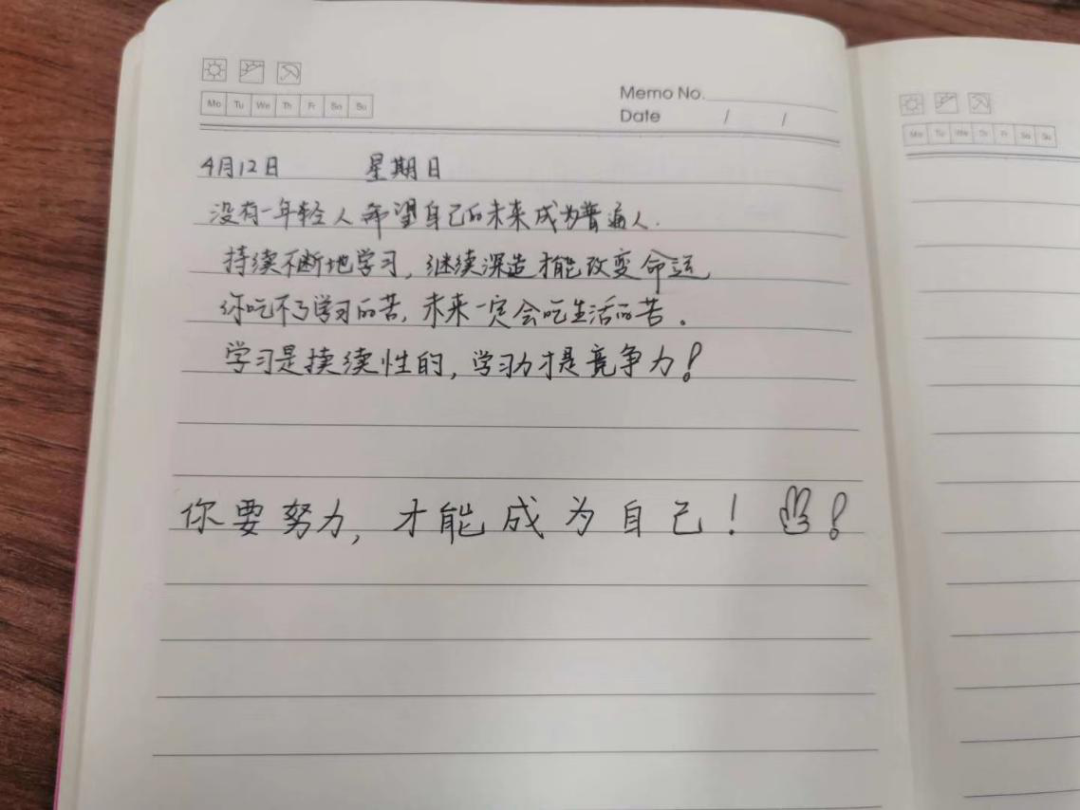 Memo No.
Date / /
Mo Tu We Th Fr Sa Su
4月12日 星期日
没有一年轻人希望自己的未来成为普通人.
持续不断地学习,继续深造才能改变命运
你吃不了学习的苦,未来一定会吃生活的苦.
学习是持续性的,学习力才是竞争力!
你要努力,才能成为自己! !
Mo Tu We Th Fr Sa Su